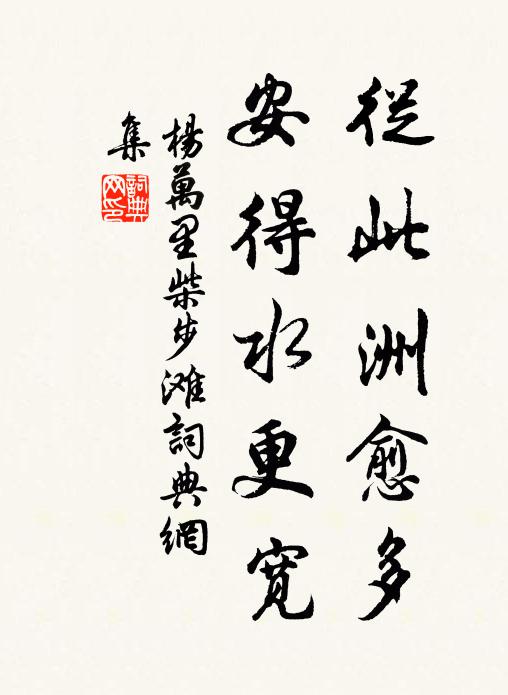 從此洲愈多
安得水更寬
楊萬里柴步滩詞典網
集
詞典
网印